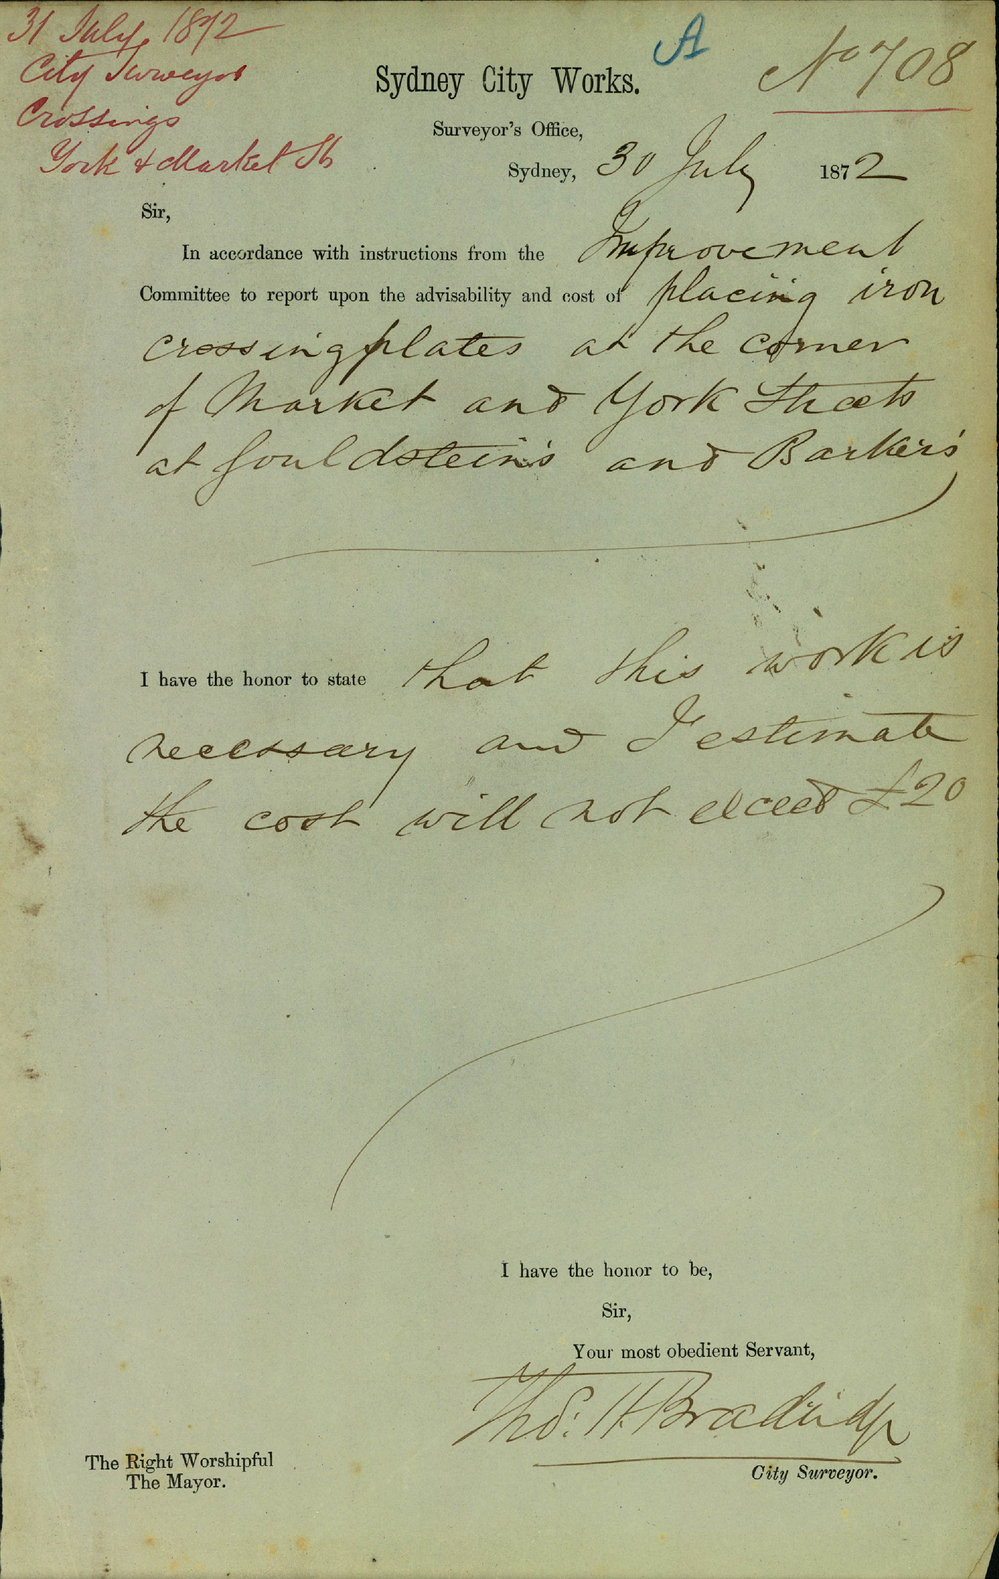 31 July 1872
City Surveyor
Crossings
York & Market St
A
No 708
Sydney City Works.
Surveyor's Office,
Sydney, 30 July 1872
Sir,
In accordance with instructions from the Improvement
Committee to report upon the advisability and cost of placing iron
crossing plates at the corner
of Market and York Streets
at Gouldstein's and Barker's
I have the honor to state that this work is
necessary and I estimate
the cost will not exceed £20
I have the honor to be,
Sir,
Your most obedient Servant,
Thos. H Bradridge
City Surveyor.
The Right Worshipful
The Mayor.